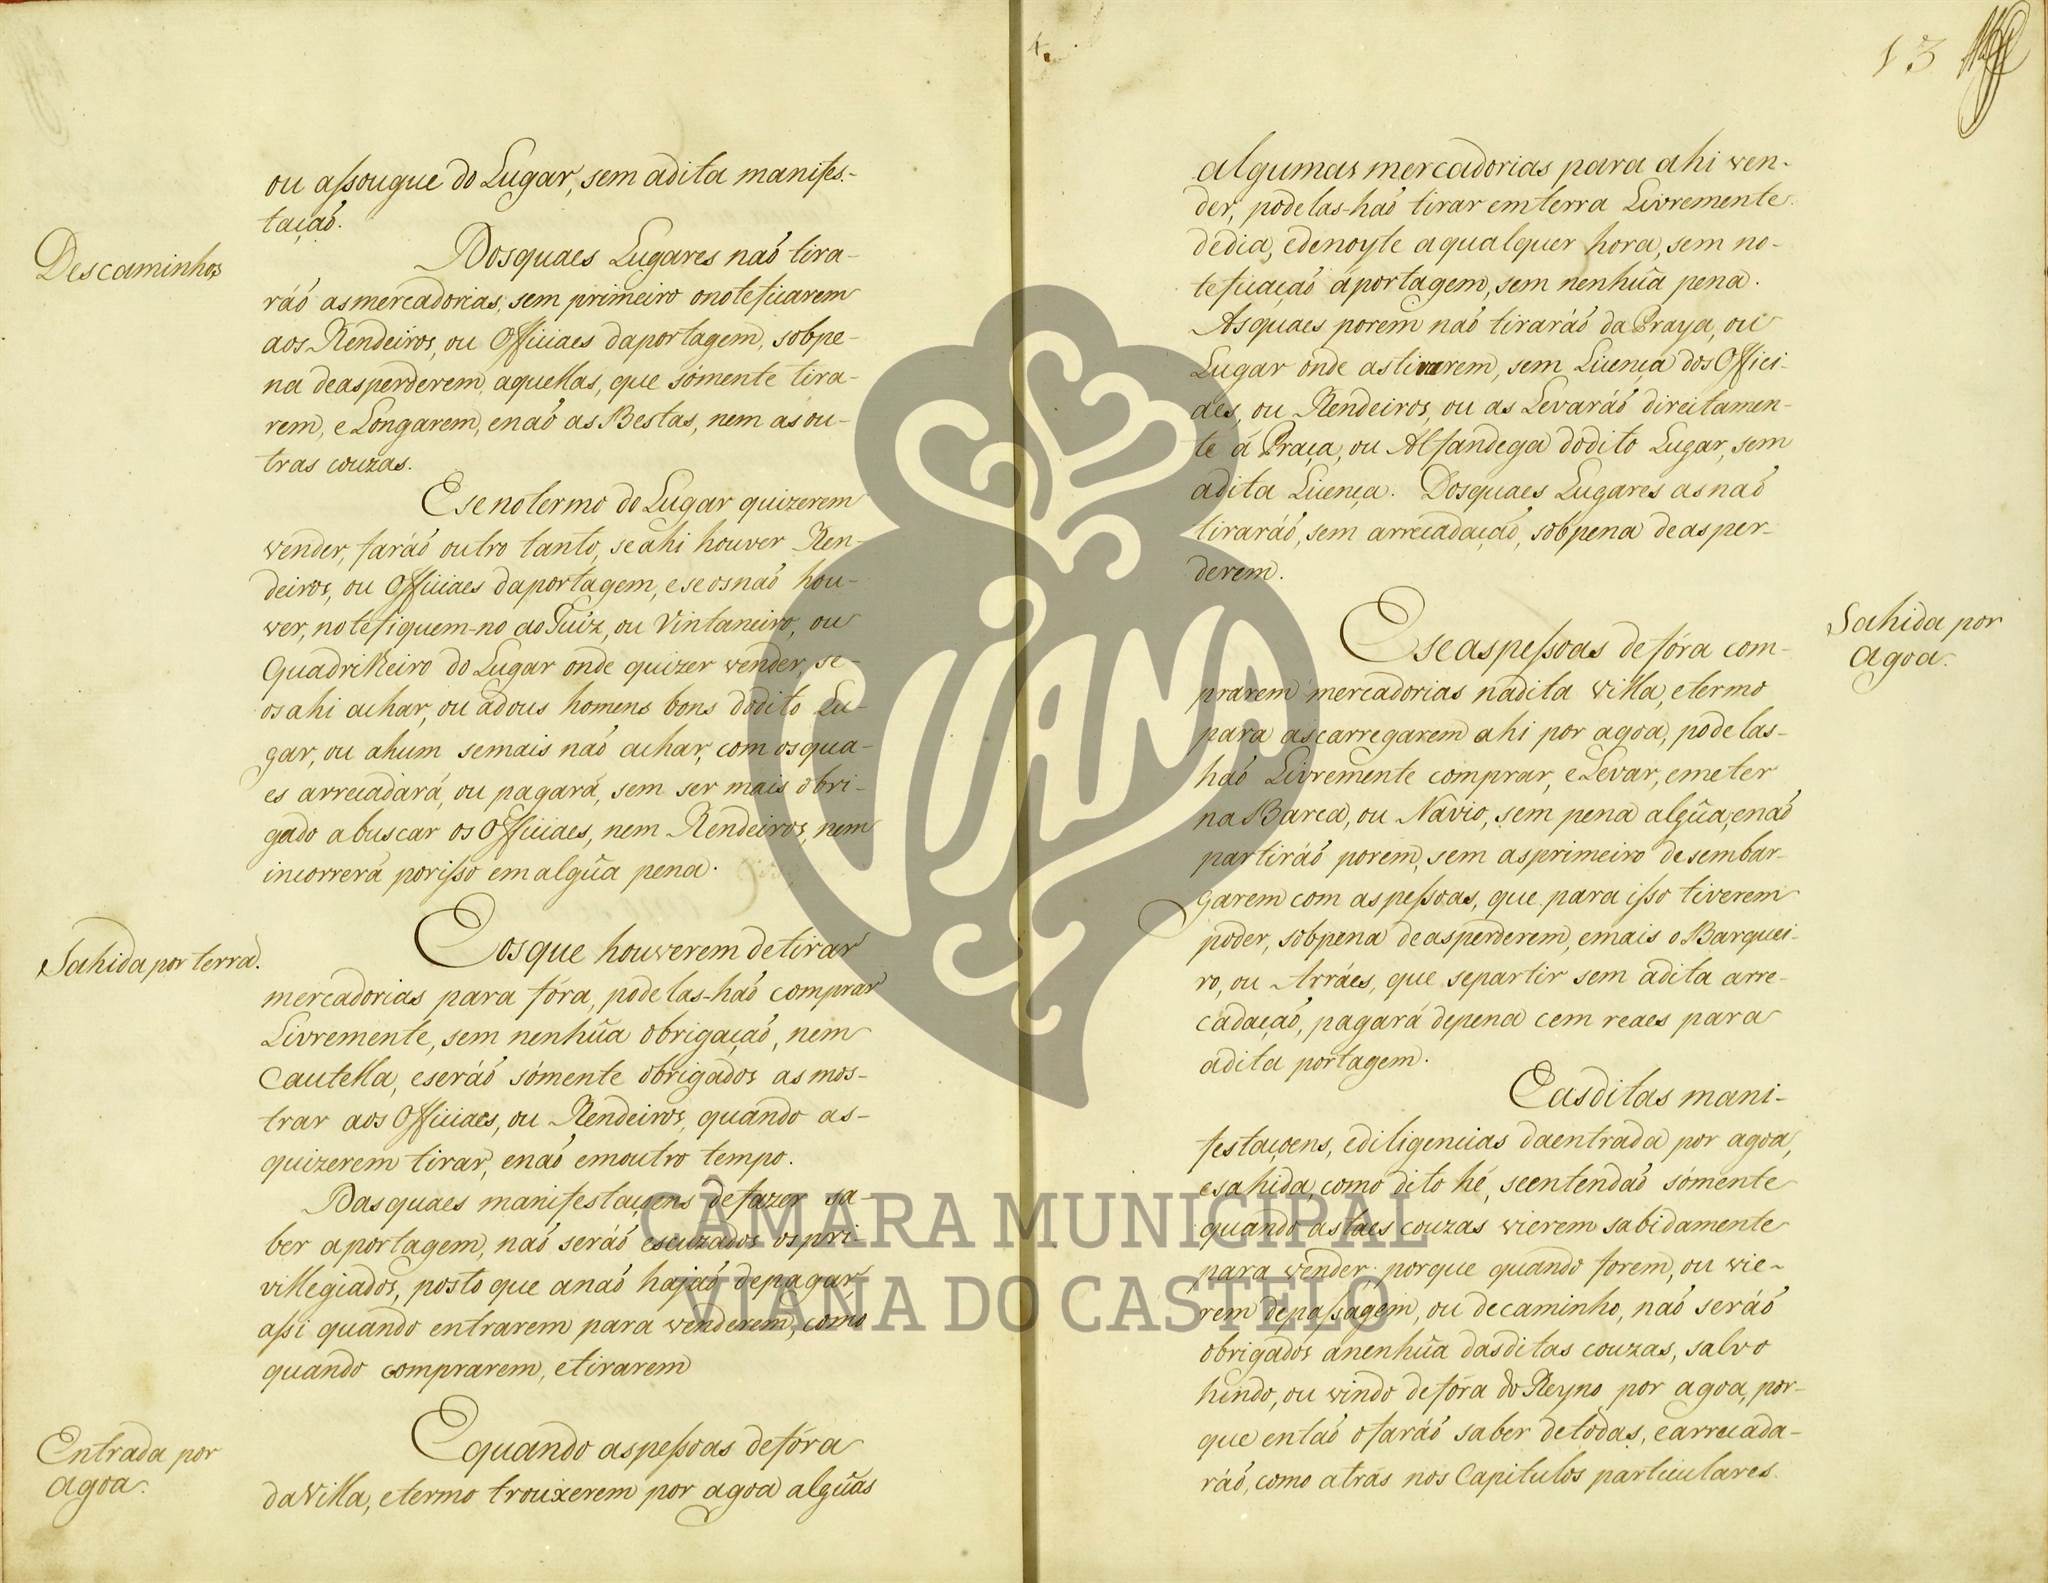 ou assougue do Lugar, sem adita manifes-
taçaõ.
Descaminhos
Dosquaes Lugares naõ tira-
ráõ asmercadorias, sem primeiro onoteficarem
aos Rendeiros, ou Officiaes daportagem, sobpe-
na deasperderem, aquellas, que sómente tira-
rem, e Longarem, enaõ as Bestas, nem as ou-
tras couzas.
Ese notermo do Lugar quizerem
vender, faráõ outro tanto, se ahi houver Ren-
deiros, ou Officiaes daportagem, e se os naõ hou-
ver, notefiquem-no ao Juiz, ou Vintaneiro, ou
Quadrilheiro do Lugar onde quizer vender, se-
os ahi achar, ou adous homens bons dodito Lu-
gar, ou ahum semais naõ achar, com osqua-
es arrecadará, ou pagará, sem ser mais obri-
gado abuscar os Officiaes, nem Rendeiros, nem
incorrerá porisso em algũa pena.
Sahida por terra.
Eosque houverem detirar
mercadorias para fóra, podelas-haõ comprar
Livremente, sem nenhũa obrigaçaõ, nem
Cautella, eseráõ sómente obrigados as mos-
trar aos Officiaes, ou Rendeiros, quando as-
quizerem tirar, enaõ emoutro tempo.
Dasquaes manifestaçoens defazer sa-
ber aportagem, naõ seráõ escuzados ospri-
villegiados, posto que anaõ hajaõ depagar
assi quando entrarem para venderem, como
quando comprarem, etirarem
Entrada por
agoa.
Equando aspessoas defóra
daVilla, etermo trouxerem por agoa algũas
13
algumas mercadorias para ahi ven-
der, podelas-haõ tirar emterra Livremente
dedia, edenoyte aqualquer hora, sem no-
teficaçaõ áportagem, sem nenhũa pena.
Asquaes porem naõ tiraráõ da Praya, ou
Lugar onde astivarem, sem Licença dos Offici-
aes, ou Rendeiros, ou as Levaráõ direitamen-
te á Praça, ou Alfandega dodito Lugar, sem
adita Licença. Dosquaes Lugares asnaõ
tiraráõ, sem arrecadaçaõ, sobpena deasper-
derem.
Sahida por
agoa.
Ese aspessoas defóra com-
prarem mercadorias nadita Villa, etermo
para ascarregarem ahi por agoa, podelas-
haõ Livremente comprar, e Levar, emeter
na Barca, ou Navio, sem pena algũa, enaõ
partiráõ porem, sem asprimeiro desembar-
garem com aspessoas, que para isso tiverem
poder, sobpena deasperderem, emais o Barquei-
ro, ou Arráes, que separtir sem adita arre-
cadaçaõ, pagará depena cem reaes para
adita portagem.
Easditas mani-
festaçoens, ediligencias daentrada por agoa,
esahida, como dito hé, seentendaõ sómente
quando astaes couzas vierem sabidamente
para vender. porque quando forem, ou vie-
rem depassagem, ou decaminho, naõ seráõ
obrigados anenhũa dasditas couzas, salvo
hindo, ou vindo defóra do Reyno por agoa, por-
que entaõ ofaráõ saber detodas, earrecada-
ráõ, como atrás nos Capitulos particulares.
VIANA
CÂMARA MUNICIPAL
VIANA DO CASTELO